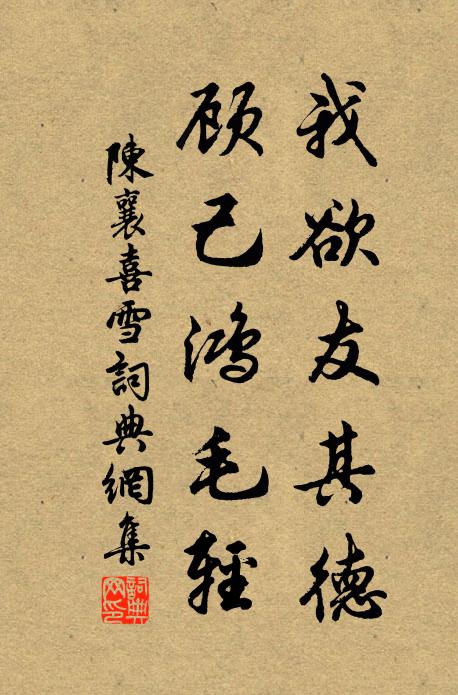 我欲友其德
顾己鸿毛轻
陳襄喜雪詞典網集
詞典网印